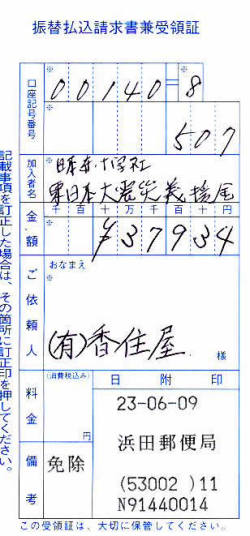 振替払込請求書兼受領証
口座記号番号
※
00140=8
※
507
加入者名
※
日本赤十字社
東日本大震災義援金
金額
千 百 十 万 千 百 十 円
※
¥37934
ご依頼人
おなまえ
※
(有)香住屋
様
料金
(消費税込み)
円
備考
免除
日 附 印
23-06-09
浜田郵便局
(53002 )11
N91440014
記載事項を訂正した場合は、その箇所に訂正印を押してください。
この受領証は、大切に保管してください。